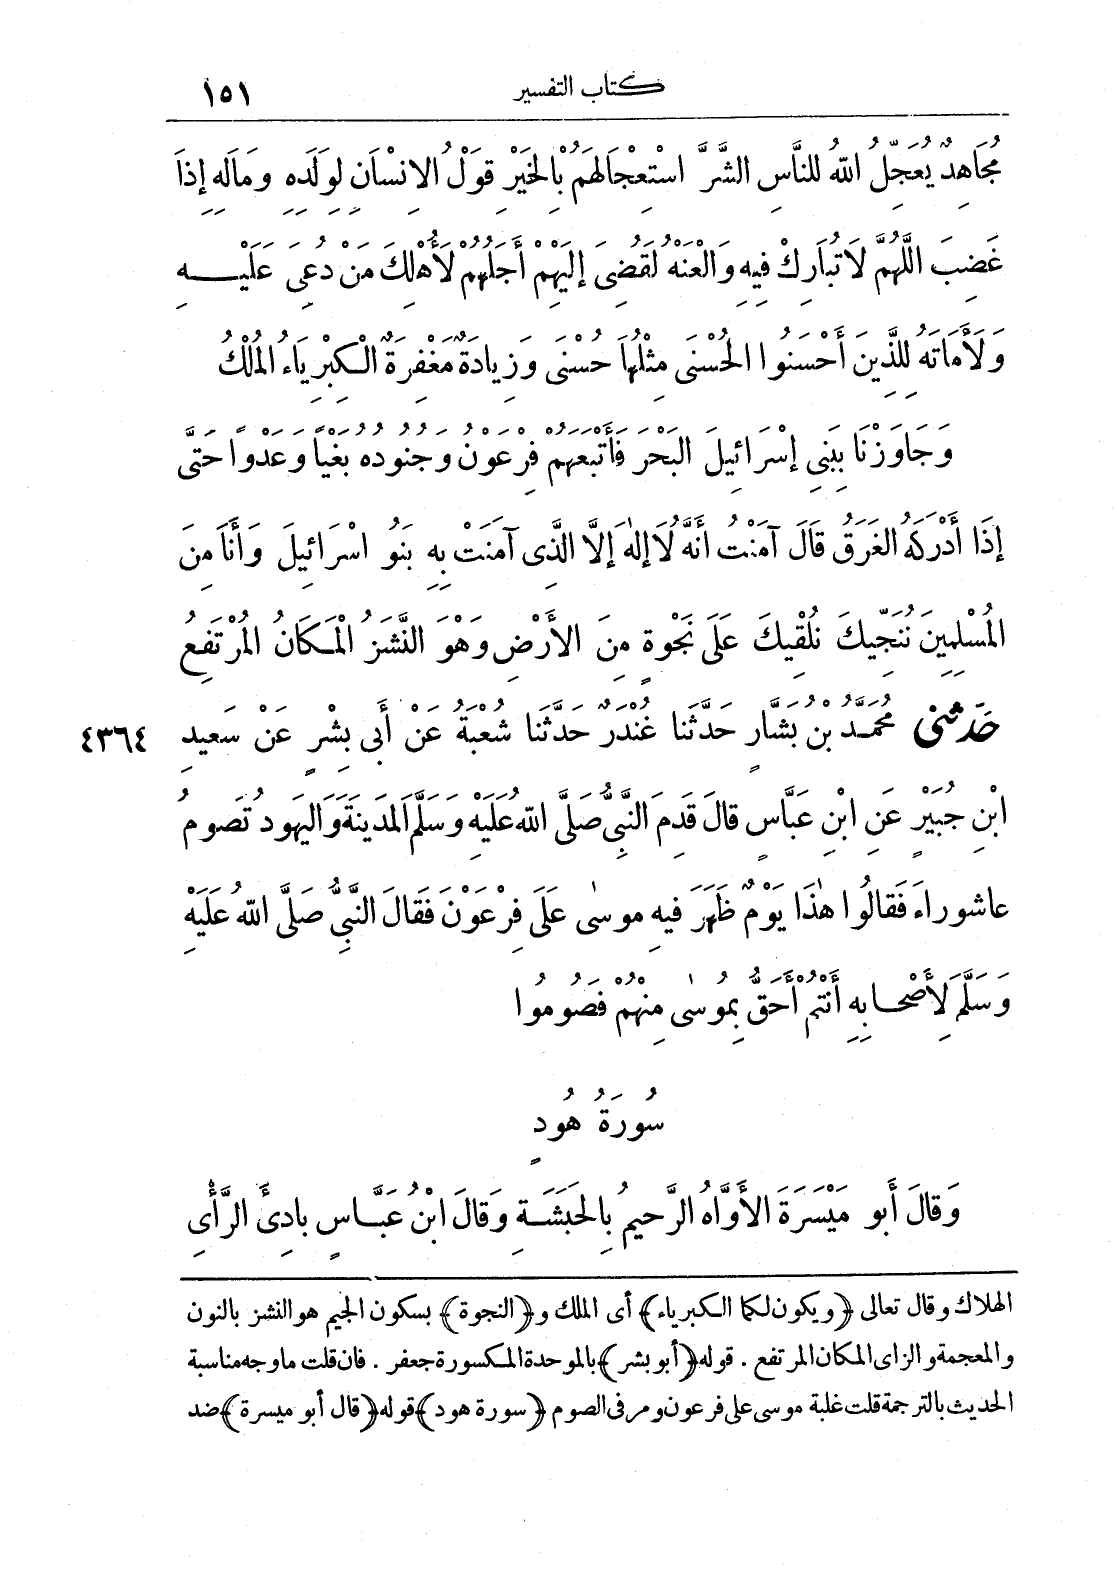 كتاب التفسير ١٥١
مُجَاهِدٌ يُعَجِّلُ اللهُ لِلنَّاسِ الشَّرَّ اسْتِعْجَالَهُمْ بِالْخَيْرِ قَوْلُ الِانْسَانِ لِوَلَدِهِ وَمَالِهِ إِذَا
غَضِبَ اللَّهُمَّ لَا تُبَارِكْ فِيهِ وَالْعَنْهُ لَقُضِىَ إِلَيْهِمْ أَجَلُهُمْ لَأُهْلِكَ مَنْ دُعِىَ عَلَيْهِ
وَلَأَمَاتَهُ لِلَّذِينَ أَحْسَنُوا الْحُسْنَى مِثْلُهَا حُسْنَى وَزِيَادَةٌ مَغْفِرَةٌ الْكِبْرِيَاءُ الْمُلْكُ
وَجَاوَزْنَا بِبَنِى إِسْرَائِيلَ الْبَحْرَ فَأَتْبَعَهُمْ فِرْعَوْنُ وَجُنُودُهُ بَغْيًا وَعَدْوًا حَتَّى
إِذَا أَدْرَكَهُ الْغَرَقُ قَالَ آمَنْتُ أَنَّهُ لَا إِلٰهَ إِلَّا الَّذِى آمَنَتْ بِهِ بَنُو اسْرَائِيلَ وَأَنَا مِنَ
الْمُسْلِمِينَ نُنَجِّيكَ نُلْقِيكَ عَلَى نَجْوَةٍ مِنَ الْأَرْضِ وَهْوَ النَّشَزُ الْمَكَانُ الْمُرْتَفِعُ
حَدَّثَنِى مُحَمَّدُ بْنُ بَشَّارٍ حَدَّثَنَا غُنْدَرٌ حَدَّثَنَا شُعْبَةُ عَنْ أَبِى بِشْرٍ عَنْ سَعِيدِ ٤٣٦٤
ابْنِ جُبَيْرٍ عَنِ ابْنِ عَبَّاسٍ قَالَ قَدِمَ النَّبِىُّ صَلَّى اللهُ عَلَيْهِ وَسَلَّمَ الْمَدِينَةَ وَالْيَهُودُ تَصُومُ
عَاشُورَاءَ فَقَالُوا هٰذَا يَوْمٌ ظَهَرَ فِيهِ مُوسٰى عَلَى فِرْعَوْنَ فَقَالَ النَّبِىُّ صَلَّى اللهُ عَلَيْهِ
وَسَلَّمَ لِأَصْحَابِهِ أَنْتُمْ أَحَقُّ بِمُوسٰى مِنْهُمْ فَصُومُوا
سُورَةُ هُودٍ
وَقَالَ أَبُو مَيْسَرَةَ الْأَوَّاهُ الرَّحِيمُ بِالْحَبَشَةِ وَقَالَ ابْنُ عَبَّاسٍ بَادِئَ الرَّأْىِ
الهلاك وقال تعالى ﴿ويكون لكما الكبرياء﴾ أى الملك و﴿النجوة﴾ بسكون الجيم هو النشز بالنون
والمعجمة والزاى المكان المرتفع . قوله ﴿أبو بشر﴾ بالموحدة المكسورة جعفر . فان قلت ما وجه مناسبة
الحديث بالترجمة قلت غلبة موسى على فرعون ومر فى الصوم ﴿سورة هود﴾ قوله ﴿قال أبو ميسرة﴾ ضد